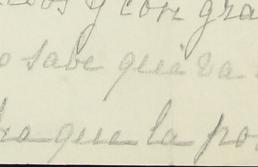 y con gra
sabe que va
que la po